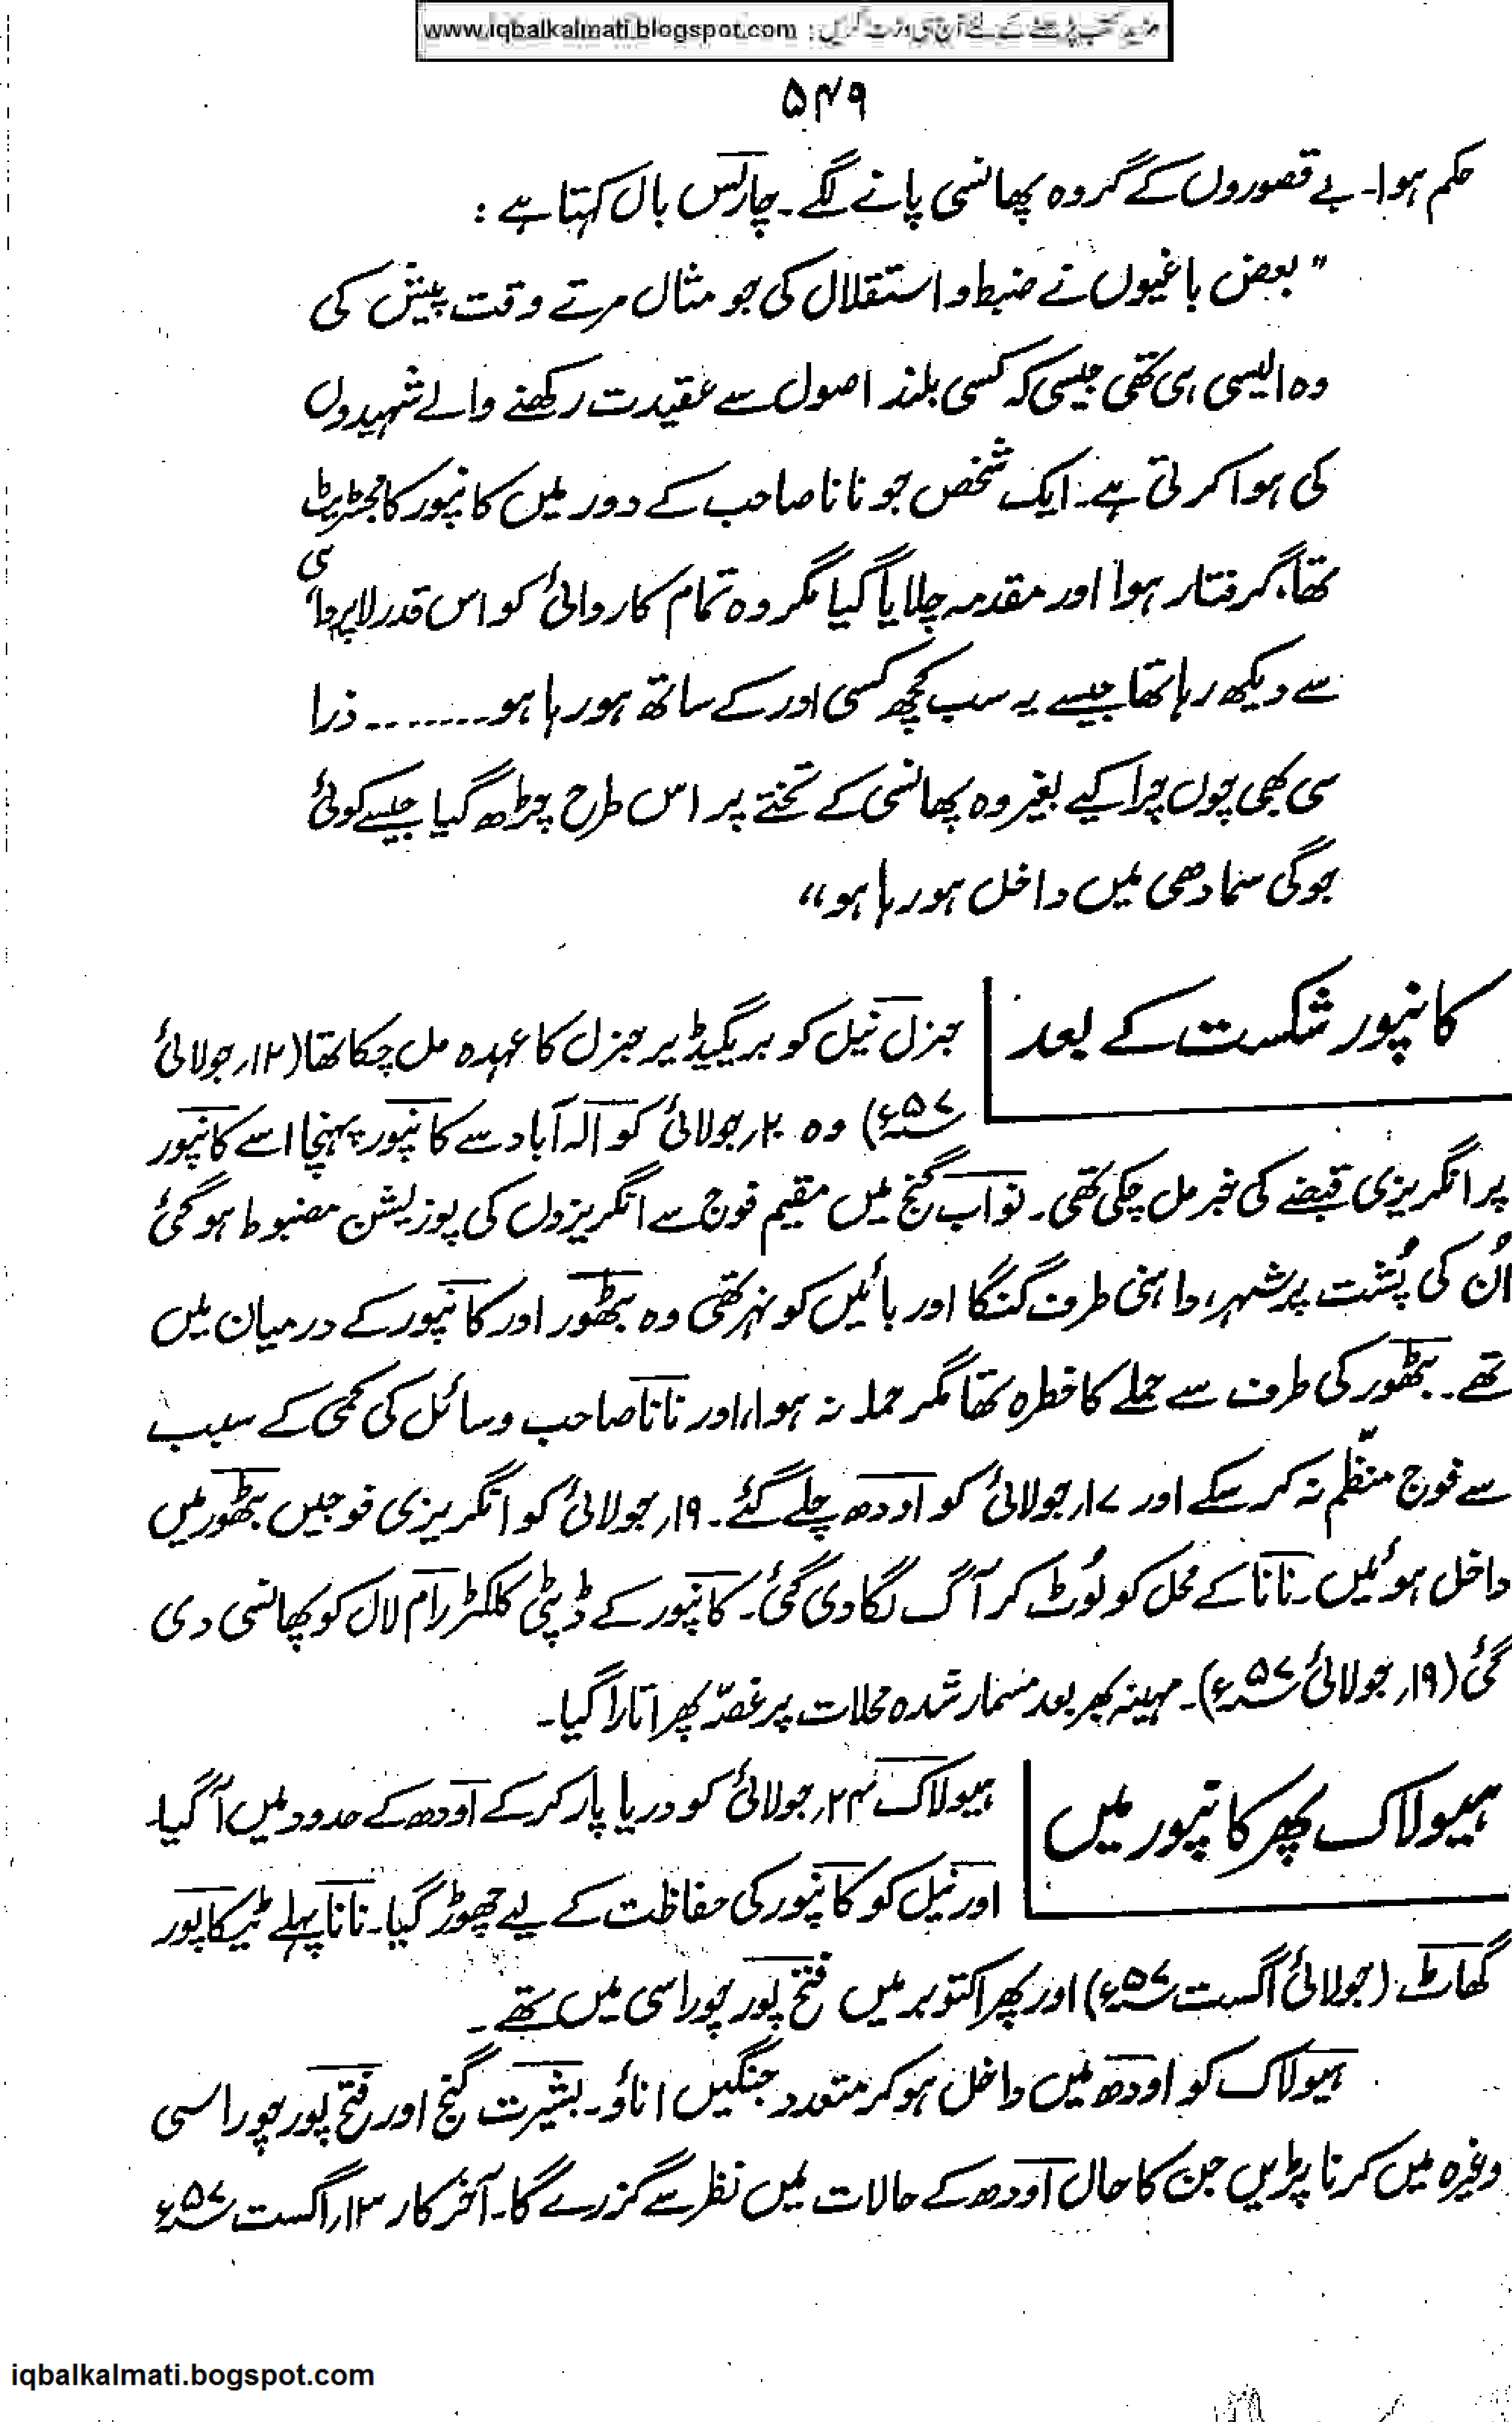 مزید کتب پڑھنے کے لئے آج ہی وزٹ کریں : www.iqbalkalmati.blogspot.com
۵۴۹
حکم ہوا۔ بے قصوروں کے گروہ پھانسی پانے لگے۔ چارلس بال کہتا ہے :
" بعض باغیوں نے ضبط و استقلال کی جو مثال مرتے وقت پیش کی
وہ ایسی ہی تھی جیسی کہ کسی بلند اصول سے عقیدت رکھنے والے شہیدوں
کی ہوا کرتی ہے۔ ایک شخص جو نانا صاحب کے دور میں کانپور کا مجسٹریٹ
تھا، گرفتار ہوا اور مقدمہ چلایا گیا مگر وہ تمام کاروائی کو اس قدر لاپروائی
سے دیکھ رہا تھا جیسے یہ سب کچھ کسی اور کے ساتھ ہو رہا ہو ........ ذرا
سی بھی چوں چرا کیے بغیر وہ پھانسی کے تختے پر اس طرح چڑھ گیا جیسے کوئی
جوگی سمادھی میں داخل ہو رہا ہو "
کانپور شکست کے بعد
جنرل نیل کو بریگیڈیر جنرل کا عہدہ مل چکا تھا (۱۲؍ جولائی
۵۷ء) وہ ۲۰؍ جولائی کو الہ آباد سے کانپور پہنچا اسے کانپور
پر انگریزی قبضے کی خبر مل چکی تھی۔ نواب گنج میں مقیم فوج سے انگریزوں کی پوزیشن مضبوط ہو گئی
اُن کی پُشت پر شہر، داہنی طرف گنگا اور بائیں کو نہر تھی وہ بٹھور اور کانپور کے درمیان میں
تھے۔ بٹھور کی طرف سے حملے کا خطرہ تھا مگر حملہ نہ ہوا، اور نانا صاحب وسائل کی کمی کے سبب
سے فوج منظّم نہ کر سکے اور ۱۷؍ جولائی کو اودھ چلے گئے۔ ۱۹؍ جولائی کو انگریزی فوجیں بٹھور میں
داخل ہوئیں۔ نانا کے محل کو لُوٹ کر آگ لگا دی گئی۔ کانپور کے ڈپٹی کلکٹر رام لال کو پھانسی دی
گئی (۱۹؍ جولائی ۵۷ء)۔ مہینہ بھر بعد مسمار شدہ محلات پر غصّہ پھر اتارا گیا۔
ہیولاک پھر کانپور میں
ہیولاک ۲۴؍ جولائی کو دریا پار کر کے اودھ کے حدود میں آ گیا۔
اور نیل کو کانپور کی حفاظت کے لیے چھوڑ گیا۔ نانا پہلے ٹیکاپور
گھاٹ (جولائی اگست ۵۷ء) اور پھر اکتوبر میں فتح پور چوراسی میں تھے۔
ہیولاک کو اودھ میں داخل ہو کر متعدد جنگیں اناؤ۔ بشیرت گنج اور فتح پور چوراسی
وغیرہ میں کرنا پڑیں جن کا حال اودھ کے حالات میں نظر سے گزرے گا۔ آخر کار ۱۳؍ اگست ۵۷ء
iqbalkalmati.bogspot.com